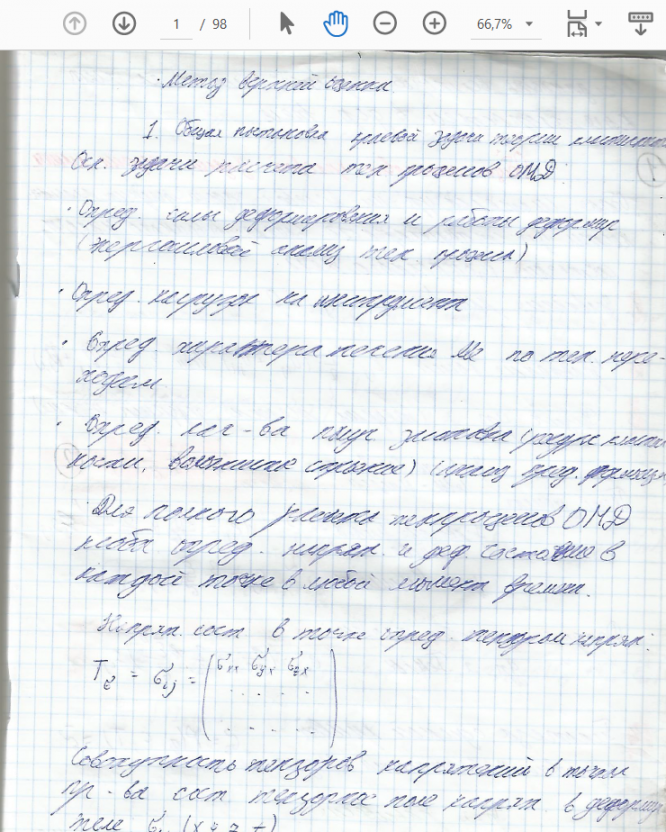 1 / 98
66,7%
Метод верхней оценки
1. Общая постановка краевой задачи теории пластично
Осн. задачи расчета тех процессов ОМД:
· Опред. силы деформирования и работы деформир
(энергосиловой анализ тех. процесса)
· Опред. нагрузок на инструмент
· Опред. характера течения Ме по тех. пере-
ходам
· Опред. кач-ва получ
Для полного расчета техпроцессов ОМД
необх опред. напряж. и деф. состояние в
каждой точке в любой момент времени.
Напряж. сост в точке опред. тензором напряж.
T_σ = σ_ij = ( σ_xx σ_yx σ_zx
. . .
. . . )
Совокупность тензоров напряжений в точках
пр-ва сост тензорное поле напряж. в деформир
теле σ_ij (x y z t)